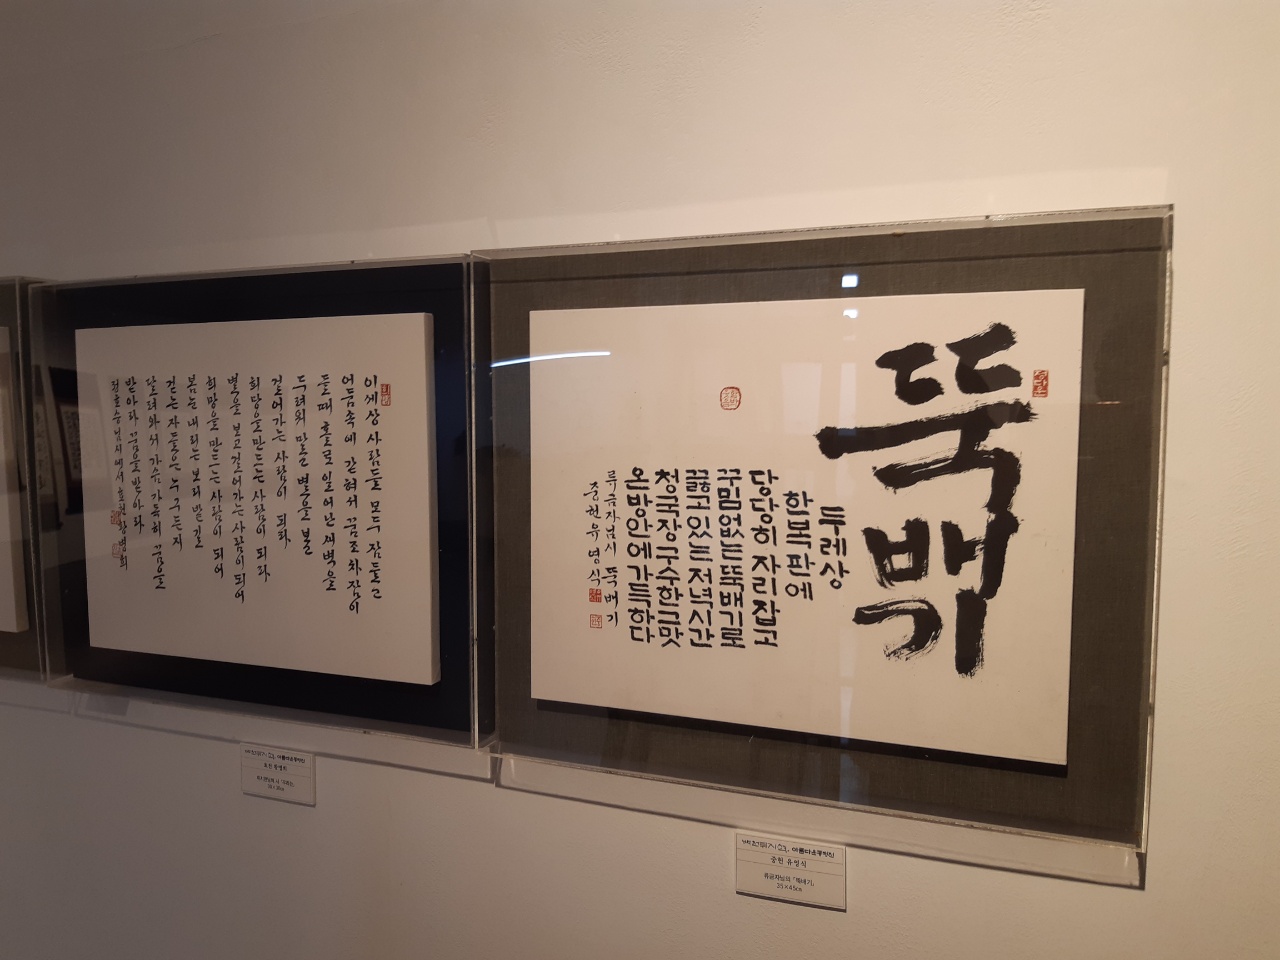 뚝배기
두레상
한복판에
당당히 자리잡고
꾸밈없는 뚝배기로
끓고있는 저녁시간
청국장 구수한 그 맛
온 방안에 가득하다
류금자님시 뚝배기
중헌 유영식
이 세상 사람들 모두 잠들고
어둠속에 갇혀서 꿈조차 잠이
들때 홀로 일어난 새벽을
두려워 말고 별을 보고
걸어가는 사람이 되라
희망을 만드는 사람이 되라
별을 보고 걸어가는 사람이 되어
희망을 만드는 사람이 되어
봄눈 내리는 보리밭길
걷는 자들은 누구든지
달려와서 가슴 가득히 꿈을
받아라 꿈을 받아라
정호승님 시에서
아름다운동행전
중헌 유영식
류금자님의 「뚝배기」
35×45㎝